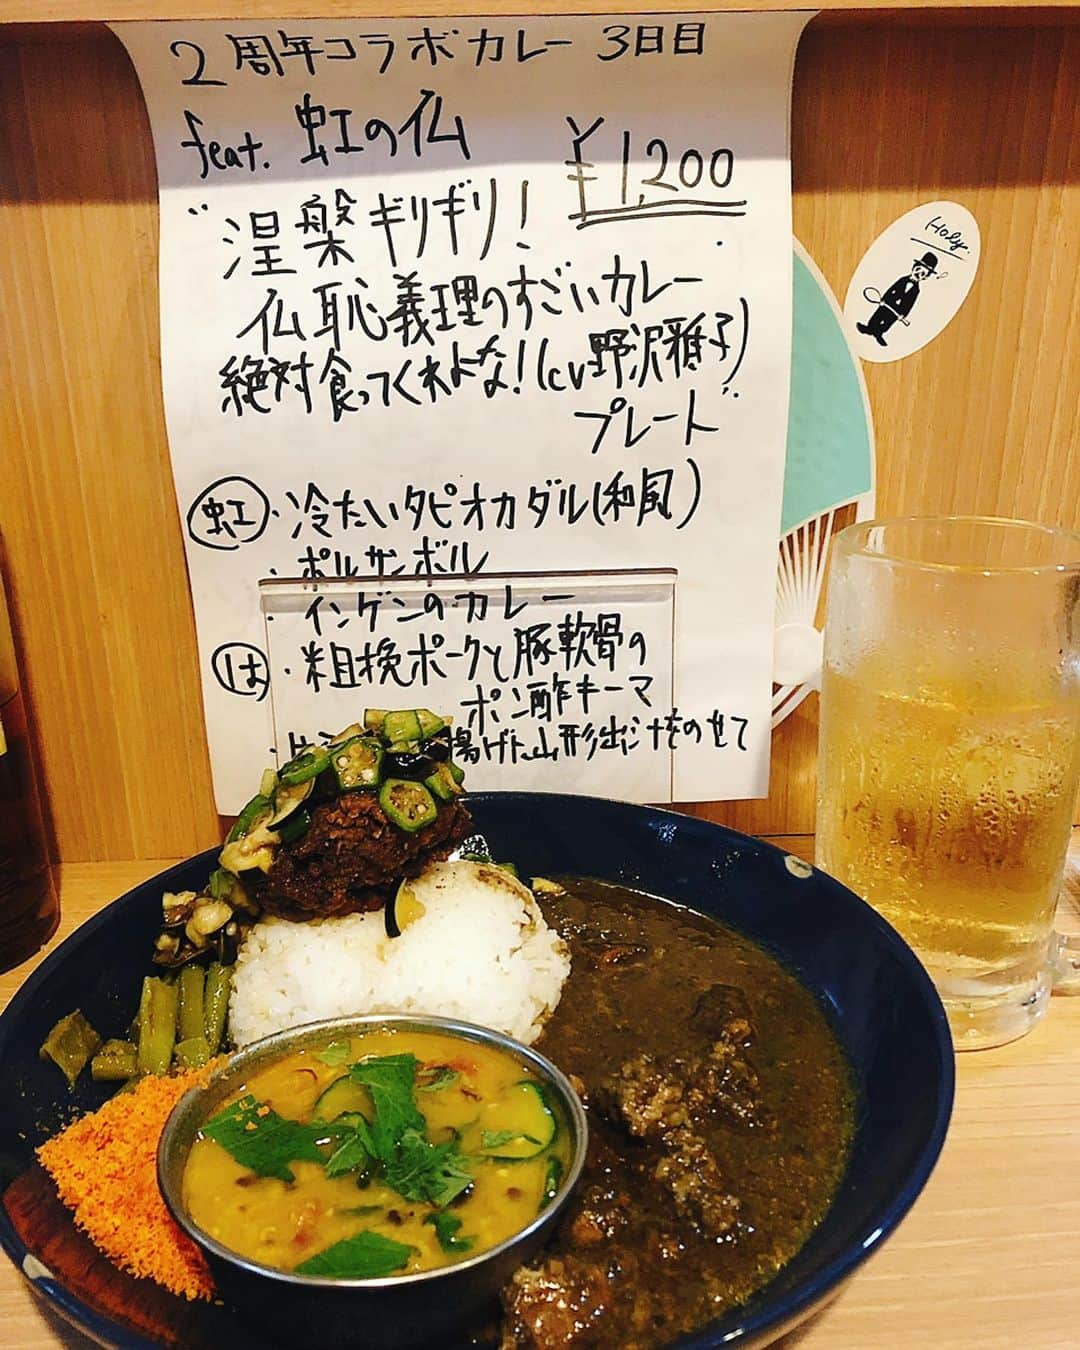 2周年コラボカレー 3日目
feat. 虹の仏
¥1,200
"涅槃ギリギリ!
仏恥義理のすごいカレー
絶対食ってくれよな!(cv野沢雅子)
プレート"
虹・冷たいタピオカダル(和風)
・ポルサンボル
・インゲンのカレー
は・粗挽ポークと豚軟骨の
ポン酢キーマ
揚げた山形出汁をのせて
Holy.